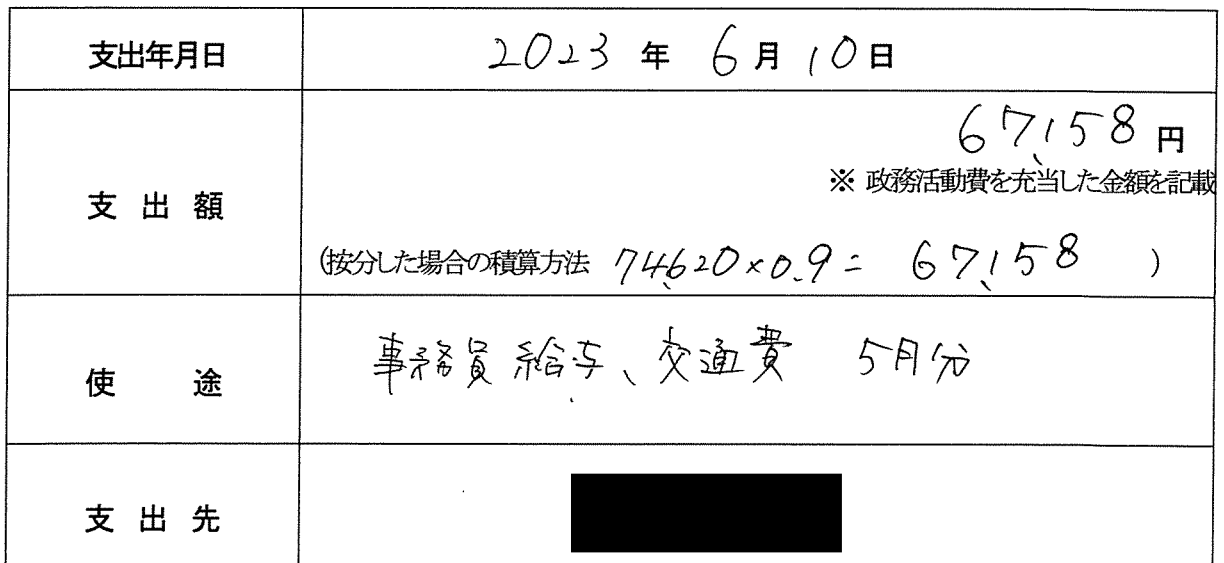 支出年月日 2023 年 6月 10日
67,158 円
※ 政務活動費を充当した金額を記載
支 出 額
(按分した場合の積算方法 74,620×0.9= 67,158 )
使 途 事務員給与、交通費 5月分
支 出 先